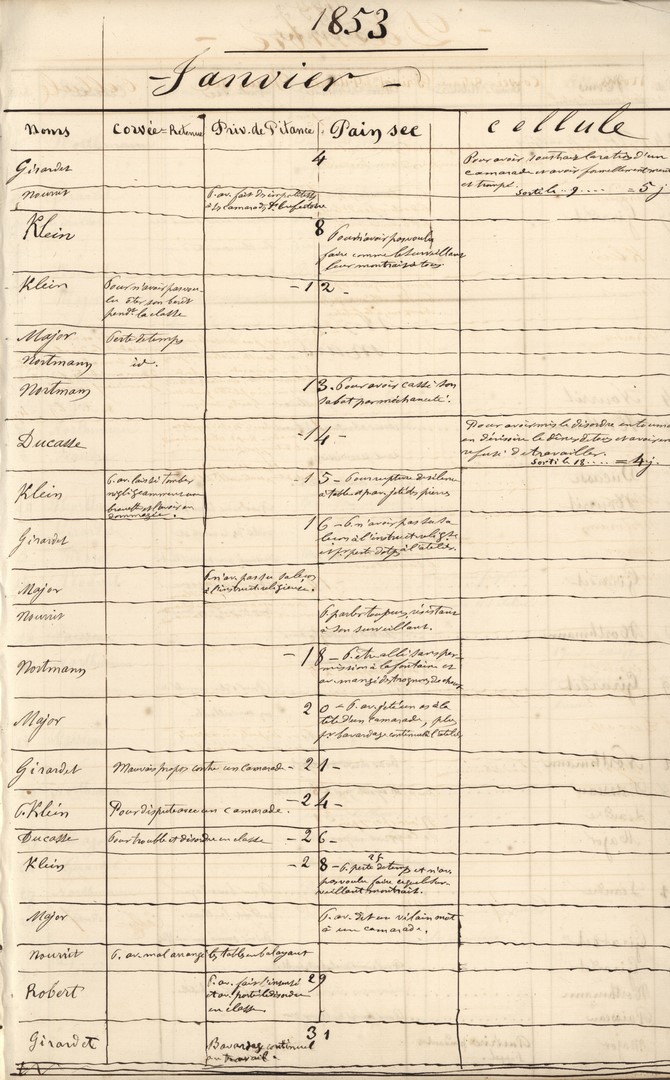 1853
Janvier
Noms Corvée=Retenue Priv. de Pitance Pain sec cellule
4
Girardet Pour avoir soustrait la ration d'un
camarade et avoir formellement
et trompé.
Sorti le 9.... = 5 j
Nourrit P. av. fait des
à ses camarades
Klein 8
Pour n'avoir pas voulu
faire comme le surveillant
leur montrait à tous
Klein Pour n'avoir pas vou-
lu ôter son
pendt. la classe
- 12 -
Major Perte de temps
Nortmann id.
Nortmann 13. Pour avoir cassé son
sabot par méchanceté.
Ducasse - 14 -
Pour avoir mis le désordre en
en dérision le dîner de tous et avoir
refusé de travailler.
Sorti le 18..... = 4 j.
Klein P. av. laissé tomber
négligemment un
et l'avoir en-
dommagée.
- 15 - Pour rupture de silence
à table et p. av. jeté des pierres
Girardet 16 - P. n'avoir pas su sa
leçon à l'instruct. relig.se
et pr. perte de tps à l'atelier.
Major P. n'av. pas su sa leçon
à l'instruct. religieuse.
Nourrit P. parler toujours, résistance
à son surveillant.
Nortmann - 18 - P. être allé sans per-
mission à la fontaine et
av. mangé des trognons de choux
Major 20 - P. av. jeté un os à la
tête d'un camarade, plus
pr. bavardage continuel à l'atelier
Girardet Mauvais propos contre un camarade - 21 -
P. Klein Pour dispute avec un camarade. - 24 -
Ducasse Pour trouble et désordre en classe - 26 -
Klein - 28 - P. perte de temps et n'av.
pas voulu faire ce que le sur-
veillant montrait.
Major P. av. dit un vilain mot
à un camarade.
Nourrit P. av. mal arrangé les tables en balayant
29
Robert P. av. fait l'insensé
et av. porté le désordre
en classe.
Girardet 31
Bavardage continuel
au travail.